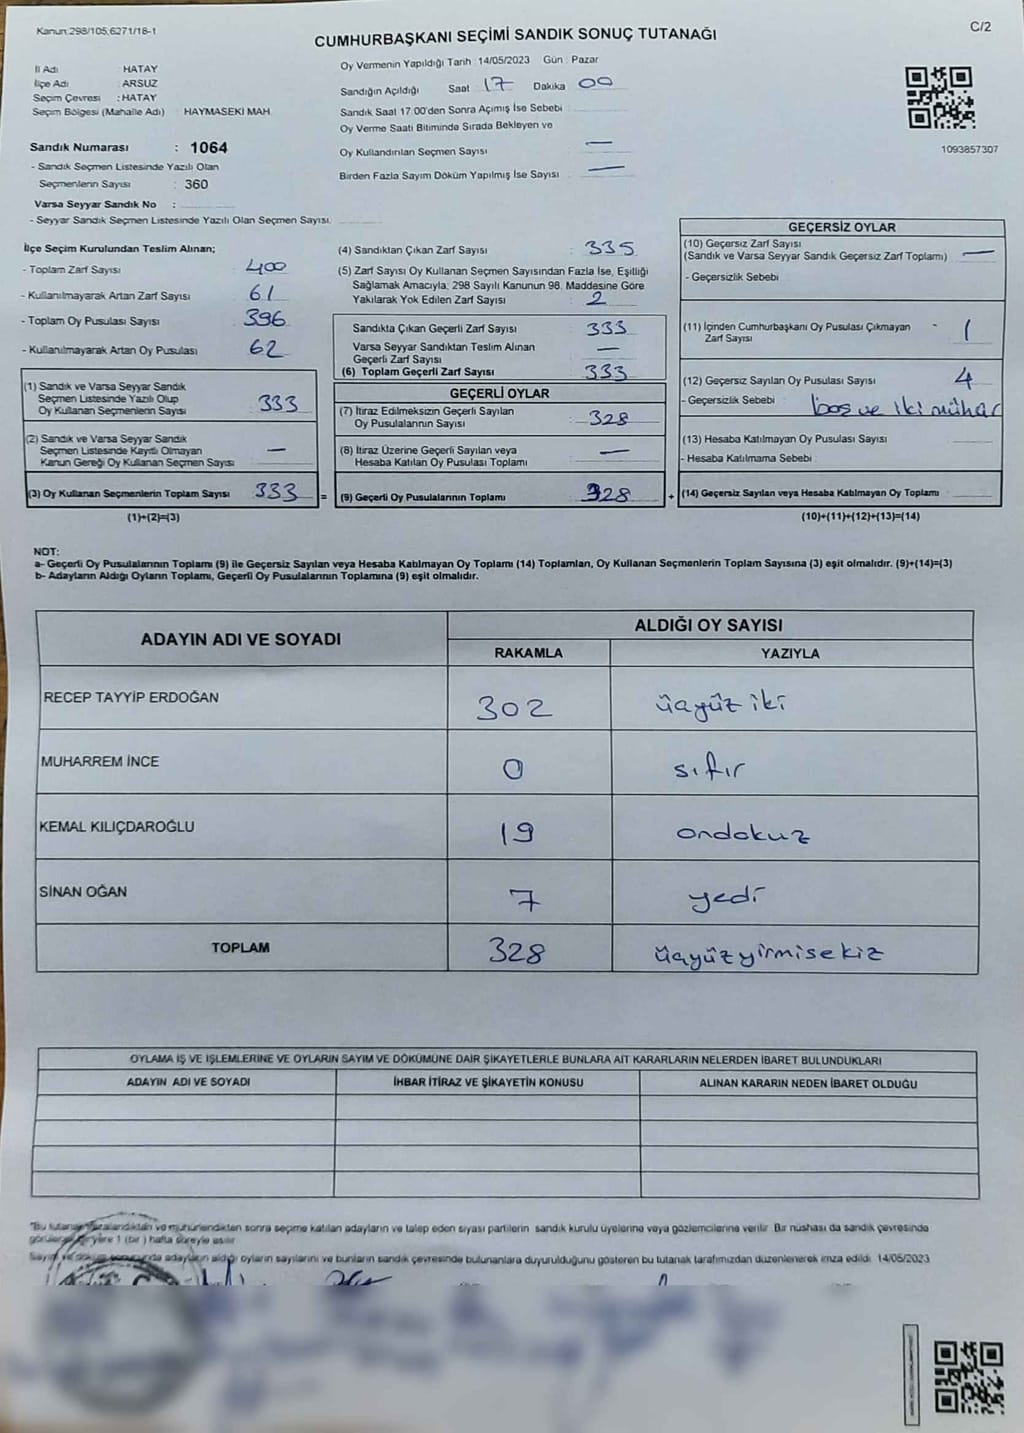 Kanun:298/105;6271/18-1
C/2
CUMHURBAŞKANI SEÇİMİ SANDIK SONUÇ TUTANAĞI
İl Adı : HATAY
İlçe Adı : ARSUZ
Seçim Çevresi : HATAY
Seçim Bölgesi (Mahalle Adı) : HAYMASEKİ MAH.
Sandık Numarası : 1064
- Sandık Seçmen Listesinde Yazılı Olan
Seçmenlerin Sayısı : 360
Varsa Seyyar Sandık No :
- Seyyar Sandık Seçmen Listesinde Yazılı Olan Seçmen Sayısı:
Oy Vermenin Yapıldığı Tarih :14/05/2023 Gün : Pazar
Sandığın Açıldığı Saat 17 Dakika 00
Sandık Saat 17:00'den Sonra Açımış İse Sebebi :
Oy Verme Saati Bitiminde Sırada Bekleyen ve
Oy Kullandırılan Seçmen Sayısı : —
Birden Fazla Sayım Döküm Yapılmış İse Sayısı : —
1093857307
İlçe Seçim Kurulundan Teslim Alınan;
- Toplam Zarf Sayısı : 400
- Kullanılmayarak Artan Zarf Sayısı : 61
- Toplam Oy Pusulası Sayısı : 396
- Kullanılmayarak Artan Oy Pusulası : 62
(1) Sandık ve Varsa Seyyar Sandık
Seçmen Listesinde Yazılı Olup
Oy Kullanan Seçmenlerin Sayısı : 333
(2) Sandık ve Varsa Seyyar Sandık
Seçmen Listesinde Kayıtlı Olmayan
Kanun Gereği Oy Kullanan Seçmen Sayısı : —
(3) Oy Kullanan Seçmenlerin Toplam Sayısı : 333 =
(1)+(2)=(3)
(4) Sandıktan Çıkan Zarf Sayısı : 335
(5) Zarf Sayısı Oy Kullanan Seçmen Sayısından Fazla İse, Eşitliği
Sağlamak Amacıyla; 298 Sayılı Kanunun 98. Maddesine Göre
Yakılarak Yok Edilen Zarf Sayısı : 2
Sandıkta Çıkan Geçerli Zarf Sayısı : 333
Varsa Seyyar Sandıktan Teslim Alınan
Geçerli Zarf Sayısı : —
(6) Toplam Geçerli Zarf Sayısı : 333
GEÇERLİ OYLAR
(7) İtiraz Edilmeksizin Geçerli Sayılan
Oy Pusulalarının Sayısı : 328
(8) İtiraz Üzerine Geçerli Sayılan veya
Hesaba Katılan Oy Pusulası Toplamı : —
(9) Geçerli Oy Pusulalarının Toplamı : 328 +
GEÇERSİZ OYLAR
(10) Geçersiz Zarf Sayısı
(Sandık ve Varsa Seyyar Sandık Geçersiz Zarf Toplamı) : —
- Geçersizlik Sebebi :
(11) İçinden Cumhurbaşkanı Oy Pusulası Çıkmayan
Zarf Sayısı : 1
(12) Geçersiz Sayılan Oy Pusulası Sayısı : 4
- Geçersizlik Sebebi : boş ve iki mühür
(13) Hesaba Katılmayan Oy Pusulası Sayısı :
- Hesaba Katılmama Sebebi :
(14) Geçersiz Sayılan veya Hesaba Katılmayan Oy Toplamı :
(10)+(11)+(12)+(13)=(14)
NOT:
a- Geçerli Oy Pusulalarının Toplamı (9) ile Geçersiz Sayılan veya Hesaba Katılmayan Oy Toplamı (14) Toplamları, Oy Kullanan Seçmenlerin Toplam Sayısına (3) eşit olmalıdır. (9)+(14)=(3)
b- Adayların Aldığı Oyların Toplamı, Geçerli Oy Pusulalarının Toplamına (9) eşit olmalıdır.
ADAYIN ADI VE SOYADI ALDIĞI OY SAYISI
RAKAMLA YAZIYLA
RECEP TAYYİP ERDOĞAN 302 üçyüz iki
MUHARREM İNCE 0 sıfır
KEMAL KILIÇDAROĞLU 19 ondokuz
SİNAN OĞAN 7 yedi
TOPLAM 328 üçyüzyirmisekiz
OYLAMA İŞ VE İŞLEMLERİNE VE OYLARIN SAYIM VE DÖKÜMÜNE DAİR ŞİKAYETLERLE BUNLARA AİT KARARLARIN NELERDEN İBARET BULUNDUKLARI
ADAYIN ADI VE SOYADI İHBAR İTİRAZ VE ŞİKAYETİN KONUSU ALINAN KARARIN NEDEN İBARET OLDUĞU
*Bu tutanak imzalandıktan ve mühürlendikten sonra seçime katılan adayların ve talep eden siyasi partilerin sandık kurulu üyelerine veya gözlemcilerine verilir. Bir nüshası da sandık çevresinde
görülecek bir yere 1 (bir) hafta süreyle asılır.
Sayım ve döküm sonucunda adayların aldığı oyların sayılarını ve bunların sandık çevresinde bulunanlara duyurulduğunu gösteren bu tutanak tarafımızdan düzenlenerek imza edildi. 14/05/2023